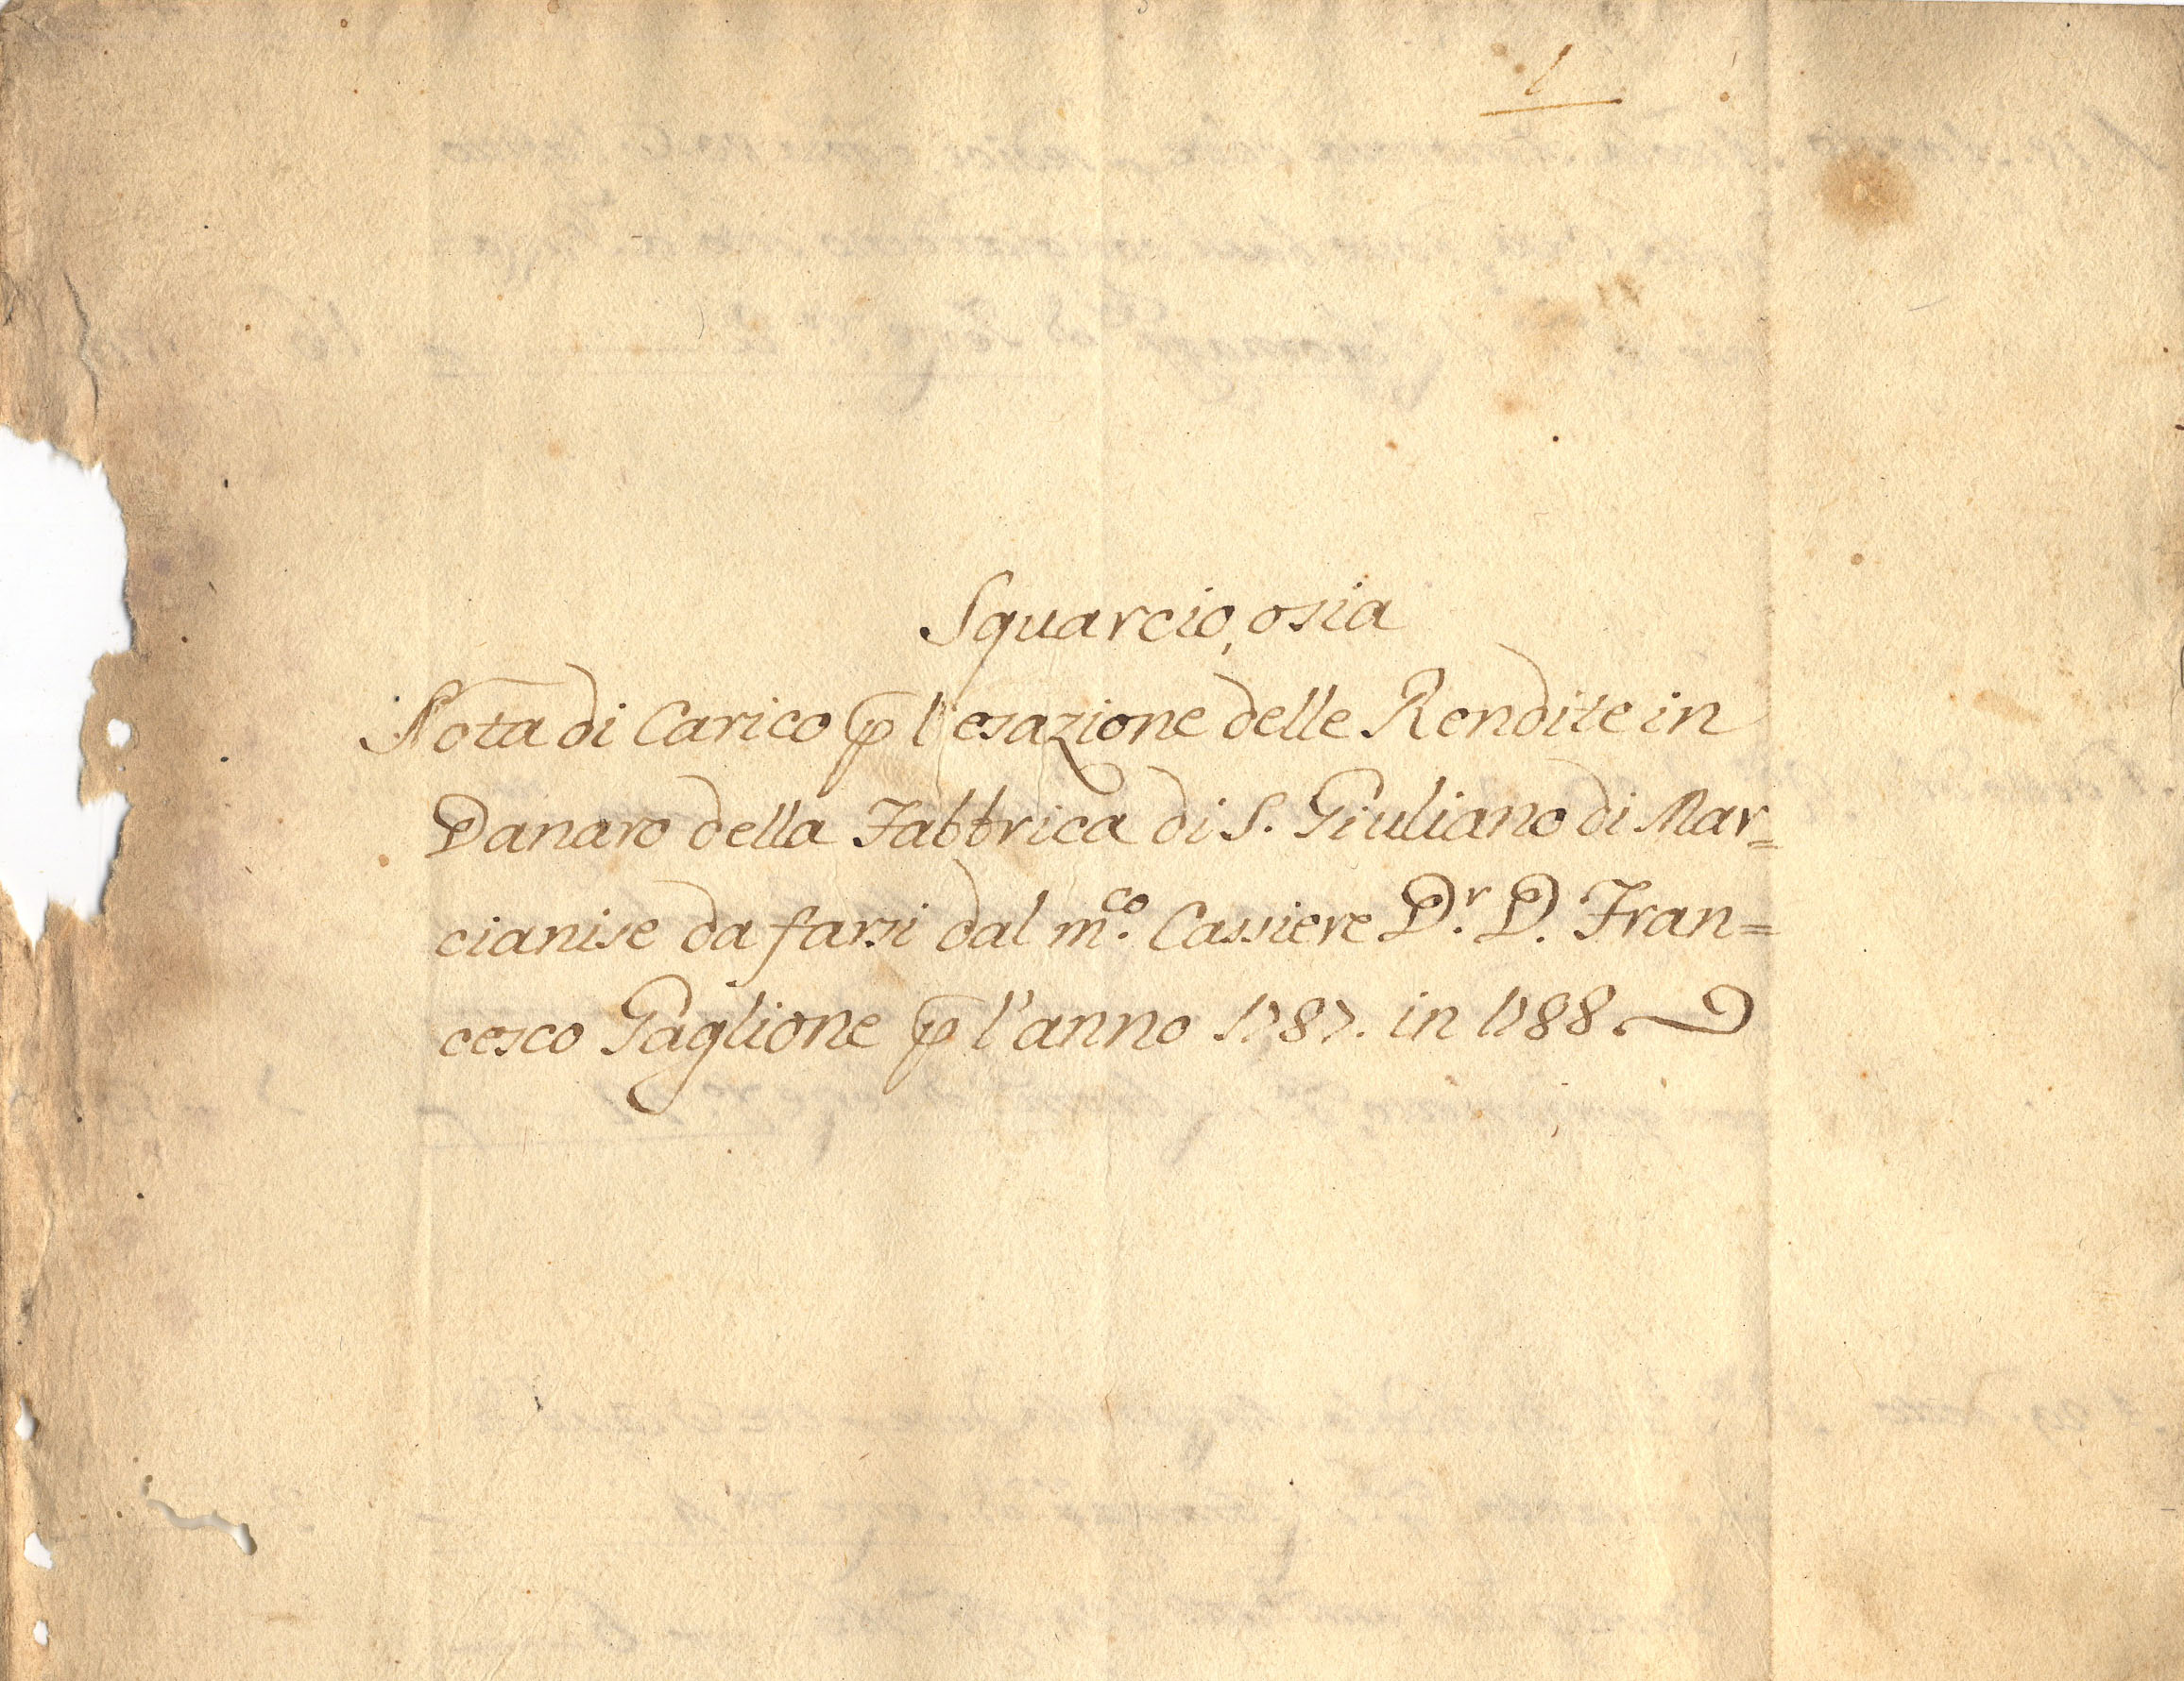 1
Squarcio, osia
Nota di Carico p l'esazione delle Rendite in
Danaro della Fabbrica di S. Giuliano di Mar=
cianise da farsi dal m.co Cassiere D.r D. Fran=
cesco Gaglione p l'anno 1787. in 1788.